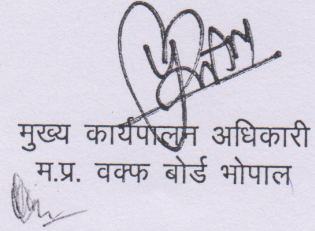 मुख्य कार्यपालन अधिकारी
म.प्र. वक्फ बोर्ड भोपाल